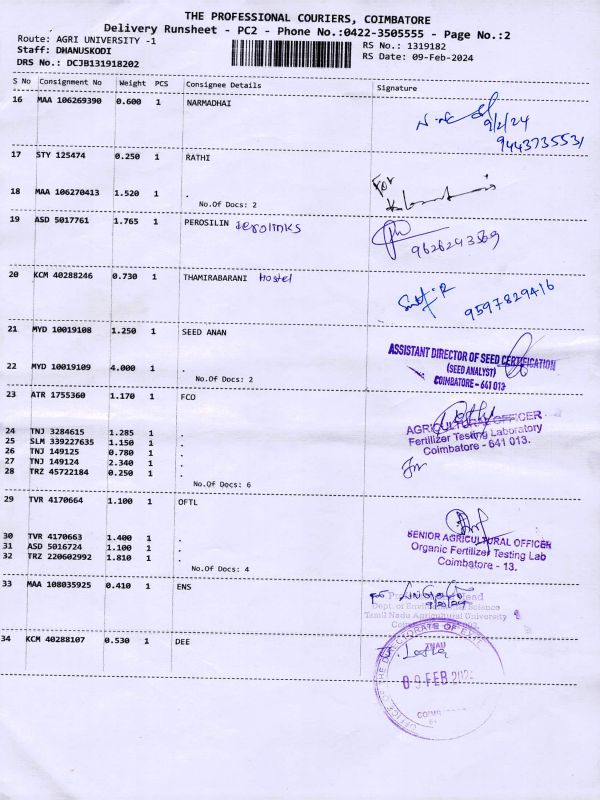 THE PROFESSIONAL COURIERS, COIMBATORE
Delivery Runsheet - PC2 - Phone No.:0422-3505555 - Page No.:2
Route: AGRI UNIVERSITY -1
RS No.: 1319182
Staff: DHANUSKODI
RS Date: 09-Feb-2024
DRS No.: DCJB131918202
S No Consignment No Weight PCS Consignee Details Signature
16 MAA 106269390 0.600 1 NARMADHAI
9/2/24
9443735531
17 STY 125474 0.250 1 RATHI
For
18 MAA 106270413 1.520 1 .
No.Of Docs: 2
19 ASD 5017761 1.765 1 PEROSILIN
9626243569
20 KCM 40288246 0.730 1 THAMIRABARANI Hostel
9597829416
21 MYD 10019108 1.250 1 SEED ANAN
ASSISTANT DIRECTOR OF SEED CERTIFICATION
(SEED ANALYST)
COIMBATORE - 641 013
22 MYD 10019109 4.000 1 .
No.Of Docs: 2
23 ATR 1755360 1.170 1 FCO
AGRICULTURAL OFFICER
Fertilizer Testing Laboratory
Coimbatore - 641 013.
24 TNJ 3284615 1.285 1 .
25 SLM 339227635 1.150 1 .
26 TNJ 149125 0.780 1 .
27 TNJ 149124 2.340 1 .
28 TRZ 45722184 0.250 1 .
No.Of Docs: 6
29 TVR 4170664 1.100 1 OFTL
SENIOR AGRICULTURAL OFFICER
Organic Fertilizer Testing Lab
Coimbatore - 13.
30 TVR 4170663 1.400 1 .
31 ASD 5016724 1.100 1 .
32 TRZ 220602992 1.810 1 .
No.Of Docs: 4
33 MAA 108035925 0.410 1 ENS
Dept. of Environmental Science
Tamil Nadu Agricultural University
34 KCM 40288107 0.530 1 DEE
OFFICE OF THE DIRECTORATE OF
TNAU
09 FEB 202